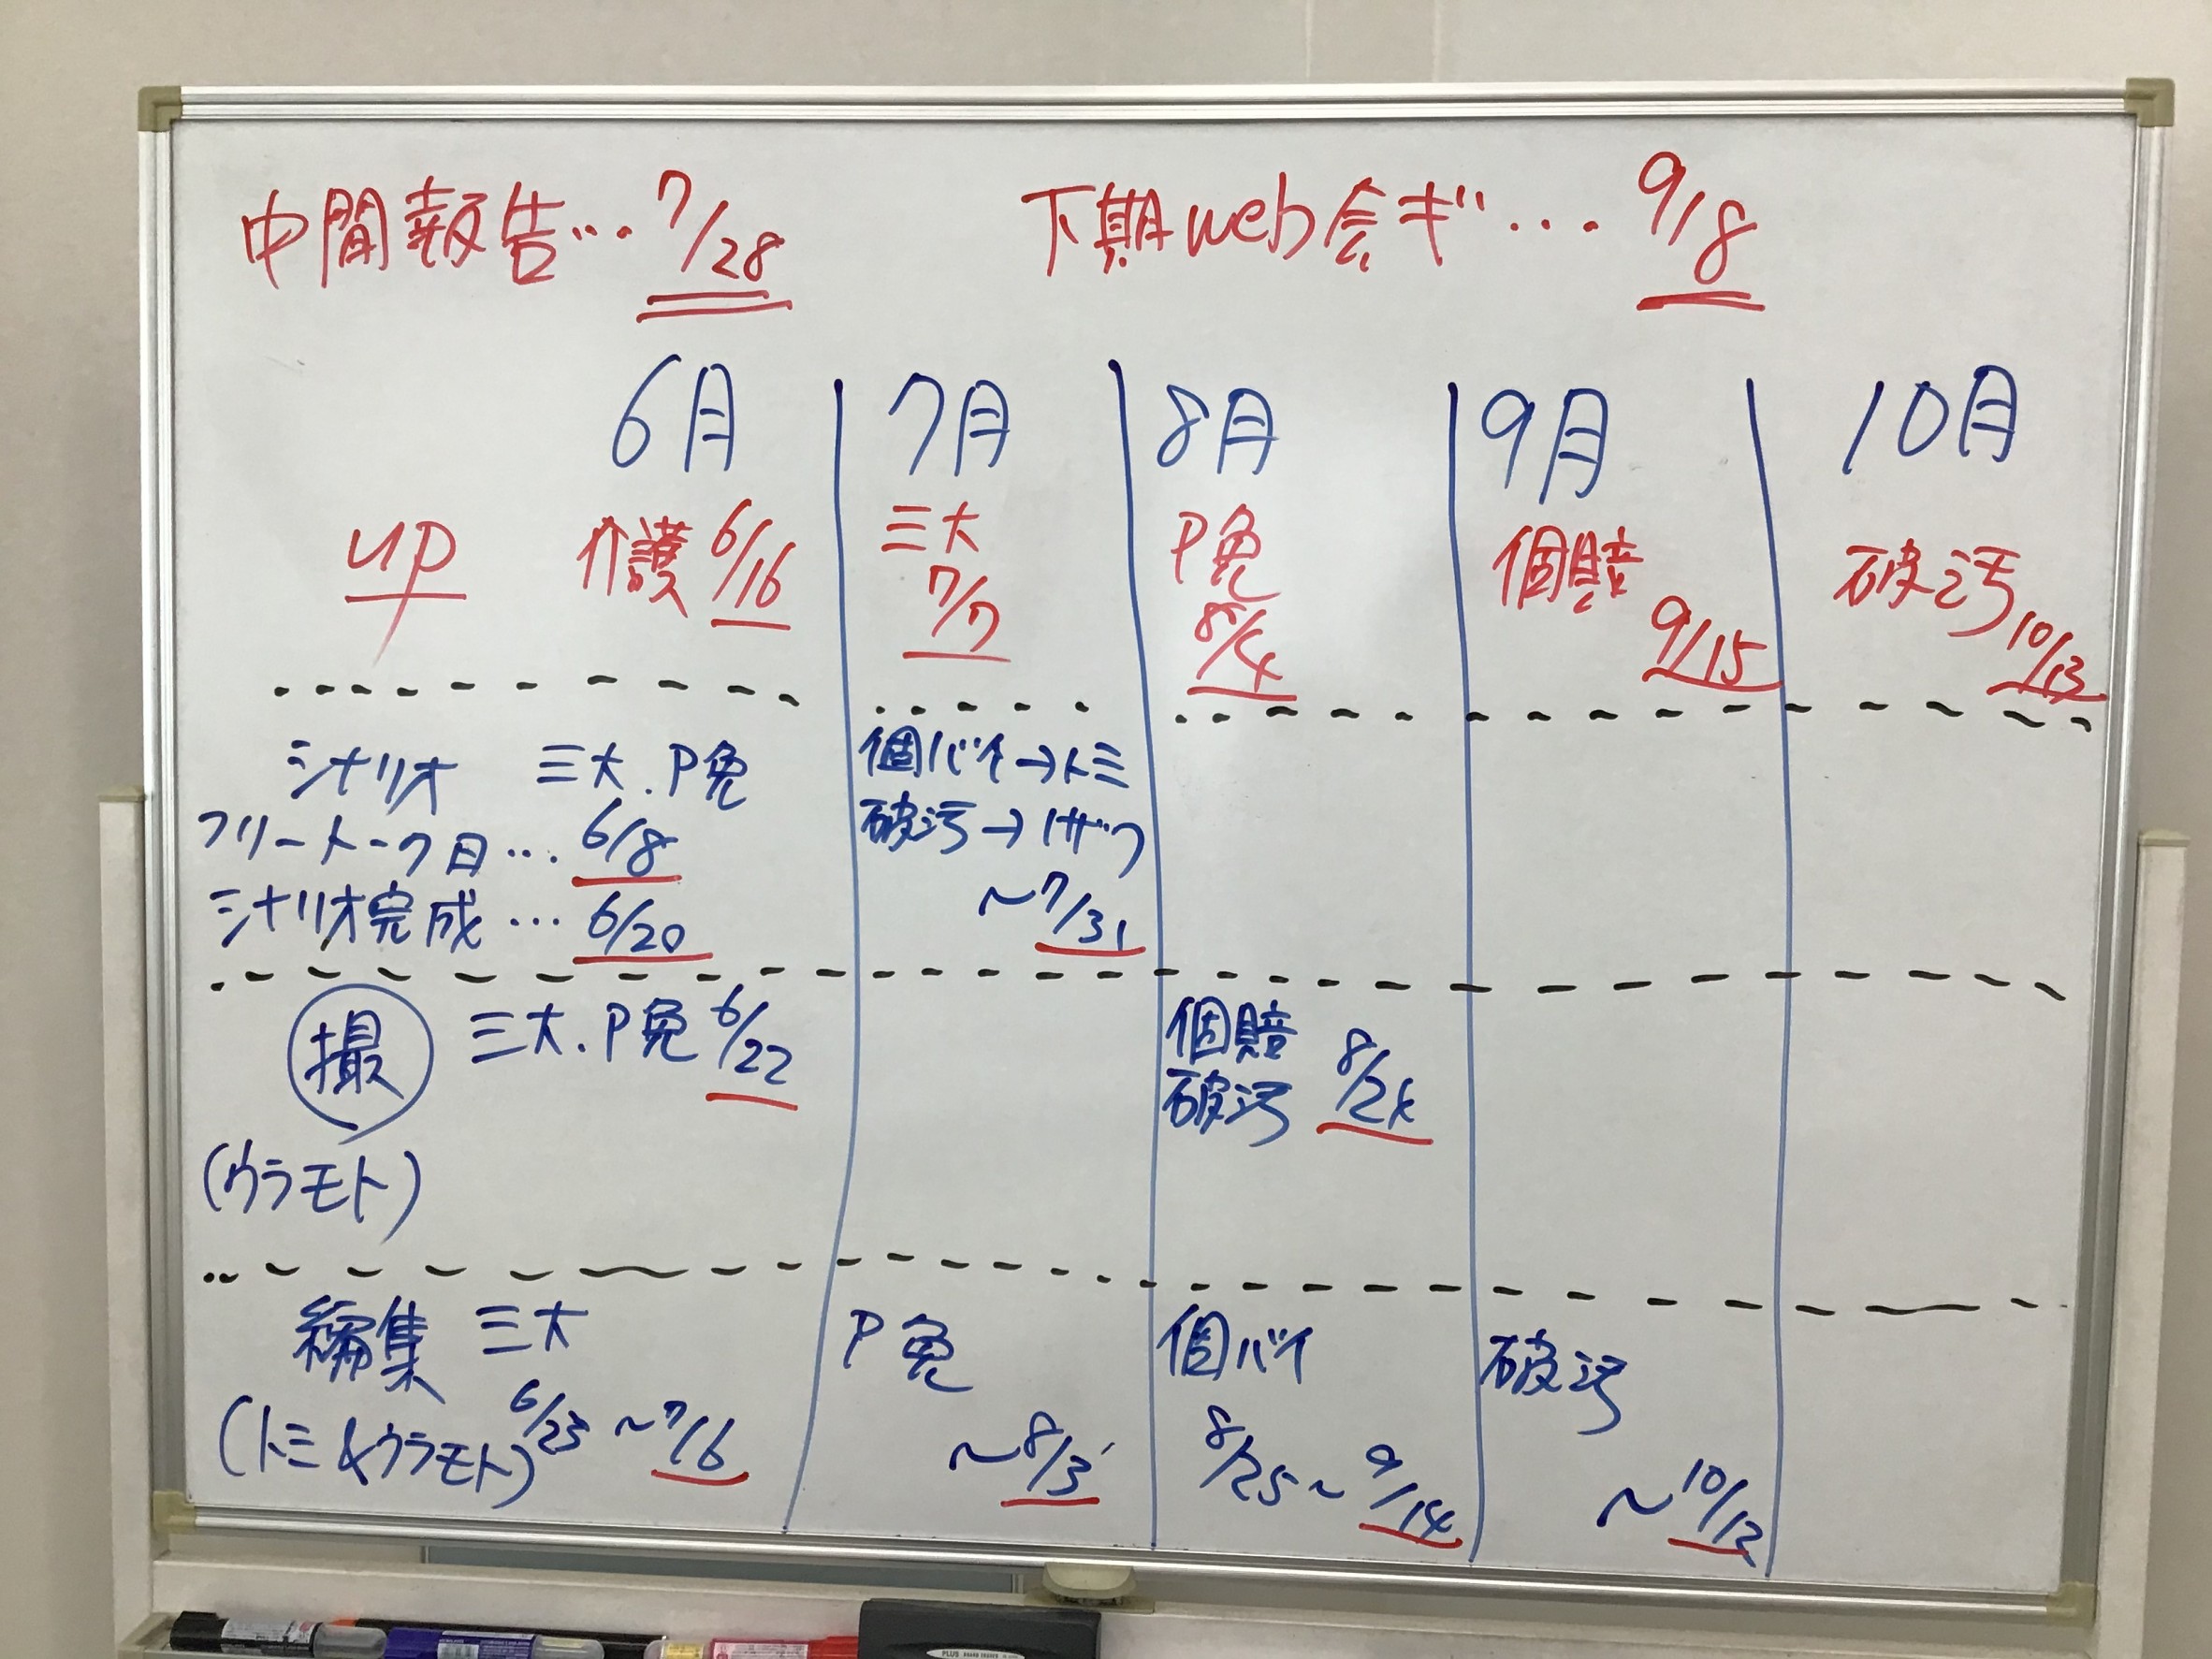 中間報告…7/28
下期web会ギ…9/8
6月 7月 8月 9月 10月
up 介護 6/16
三大 7/7
P免 8/4
個賠 9/15
破汚 10/13
シナリオ 三大.P免
フリートーク日…6/8
シナリオ完成…6/20
個バイ→トミ
破汚→イザワ
~7/31
撮 三大.P免 6/22
(ウラモト)
個賠
破汚 8/24
編集 三大
(トミ&ウラモト) 6/23~7/6
P免
~8/3
個バイ
8/25~9/14
破汚
~10/12
PLUS